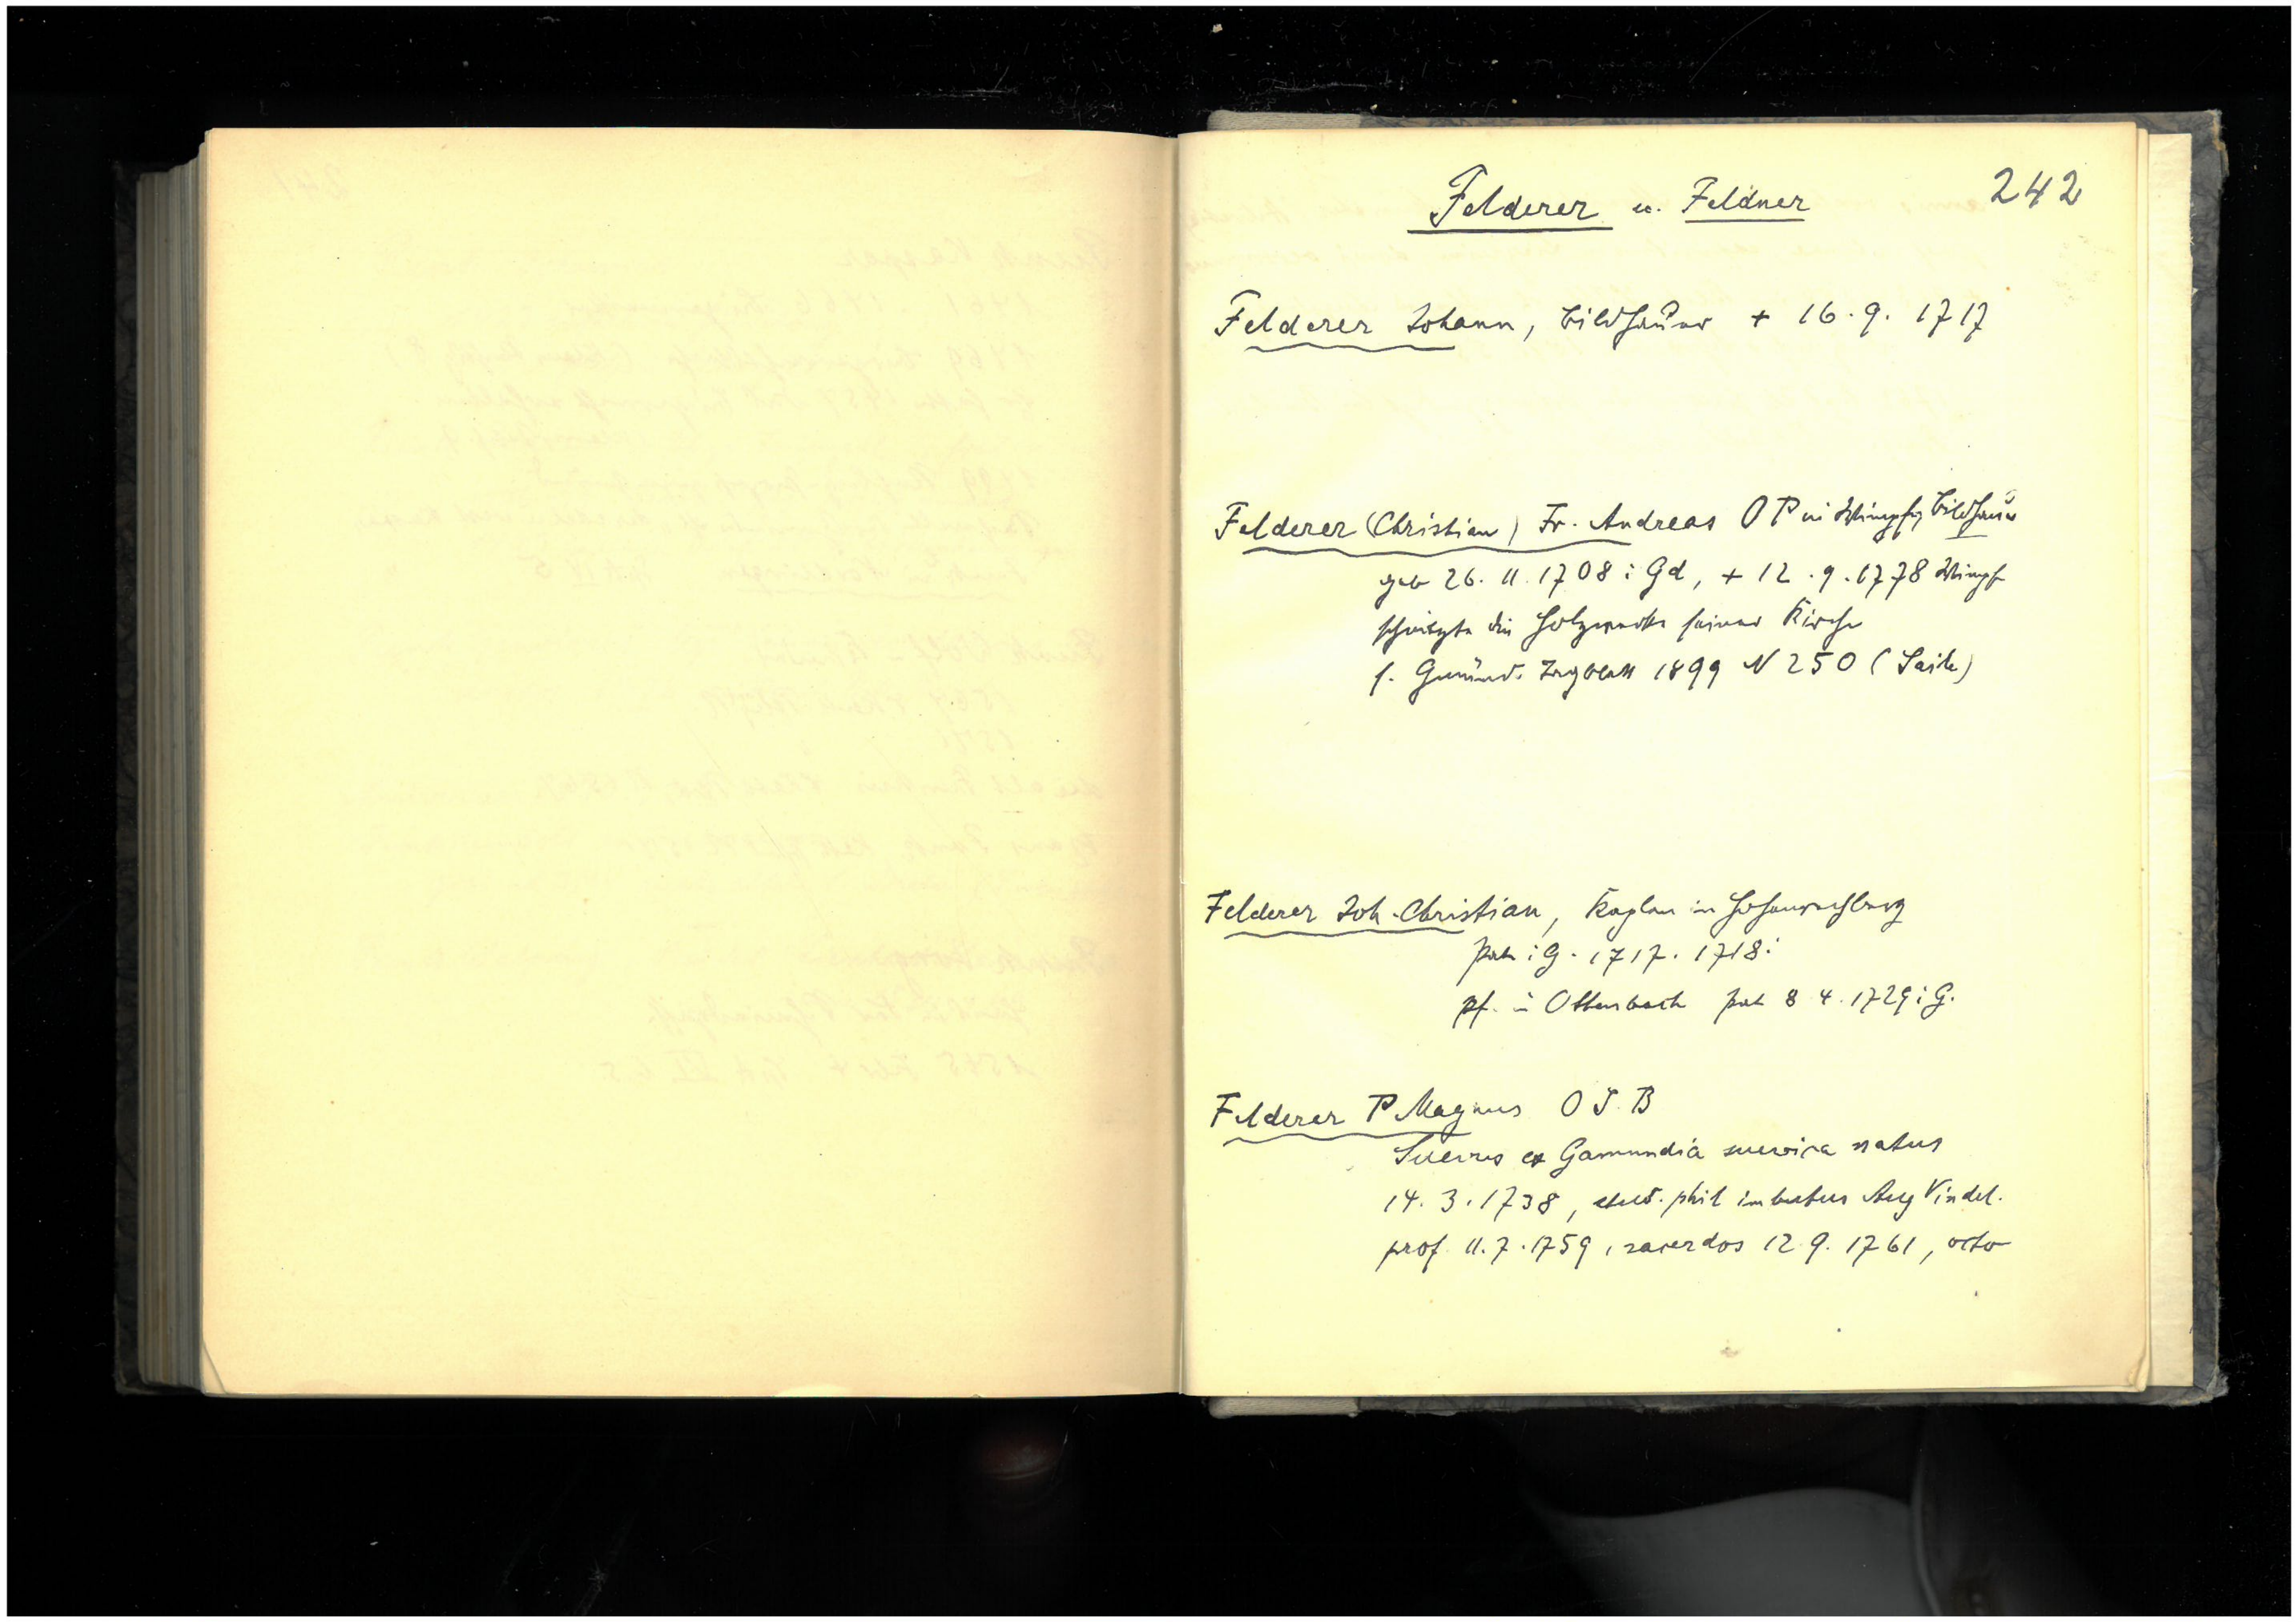 242
Felderer u. Feldner
Felderer Johann, Bildhauer + 16. 9. 1717
Felderer (Christian) Fr. Andreas O P in Wimpfen Bildhauer
geb 26. 11. 1708 i Gd, + 12. 9. 1778 Wimpf
schnitzte die Holzwerke seiner Kirche
s. Gmünd. Tagblatt 1899 N 250 (
Felderer Joh. Christian, Kaplan in Hohenrechberg
Pate i G. 1717. 1718:
Pf. in Ottenbach Pate 8 4. 1729 i G.
Felderer P Magnus O S. B
Suevus ex Gamundia suevica natus
14. 3. 1738, stud. phil imbutus Aug Vindel.
prof. 11. 7. 1759, sacerdos 12 9. 1761, octo